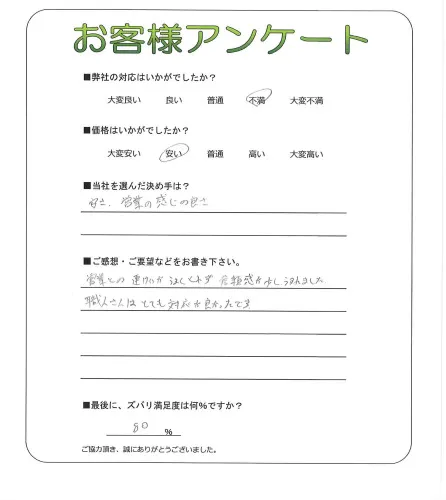 お客様アンケート
■弊社の対応はいかがでしたか？
大変良い 良い 普通 不満 大変不満
■価格はいかがでしたか？
大変安い 安い 普通 高い 大変高い
■当社を選んだ決め手は？
安さ、営業の感じの良さ
■ご感想・ご要望などをお書き下さい。
営業との 連けいが うまくとれず 信頼感が少し
職人さんは とても 対応が良かったです
■最後に、ズバリ満足度は何%ですか？
80 %
ご協力頂き、誠にありがとうございました。